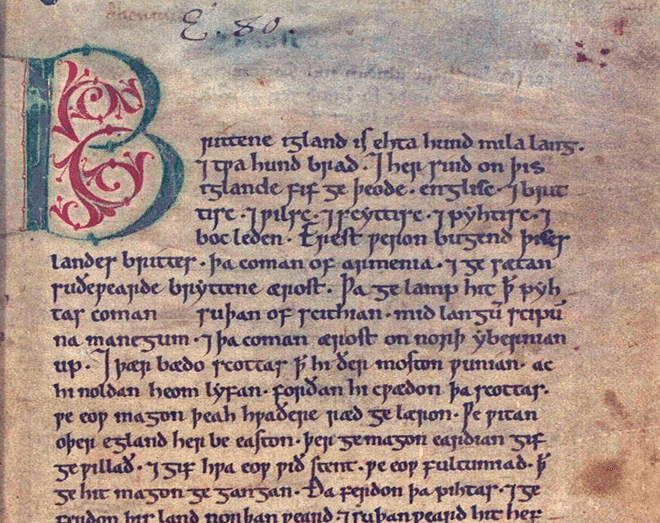 E. 80.
Brittene igland is ehta hund mila lang.
⁊ tƿa hund brad. ⁊ her sind on þis
iglande fif ge þeode. englisc. ⁊ brit
tisc. ⁊ ƿilsc. ⁊ scyttisc. ⁊ pyhtisc. ⁊
boc leden. Erest ƿeron bugend þises
landes brittes. þa coman of armenia. ⁊ ge sætan
suðeƿearde bryttene ærost. Þa ge lamp hit ꝥ pyh
tas coman suþan of scithian. mid langū scipū
na manegum. ⁊ þa coman ærost on norþ ybernian
up. ⁊ þær bædo scottas ꝥ hi ðer moston ƿunian. ac
hi noldan heom lyfan. forðan hi cƿædon þa scottas.
ƿe eoƿ magon þeah hƿaðere ræd ge læron. Ƿe ƿitan
oþer egland her be easton. þer ge magon eardian gif
ge ƿillað. ⁊ gif hƿa eoƿ ƿið stent. ƿe eoƿ fultumiað. ꝥ
ge hit magon ge gangan. Ða ferdon þa pihtas. ⁊ ge
ferdon þis land norþan ƿeard. ⁊ suþan ƿeard hit hef